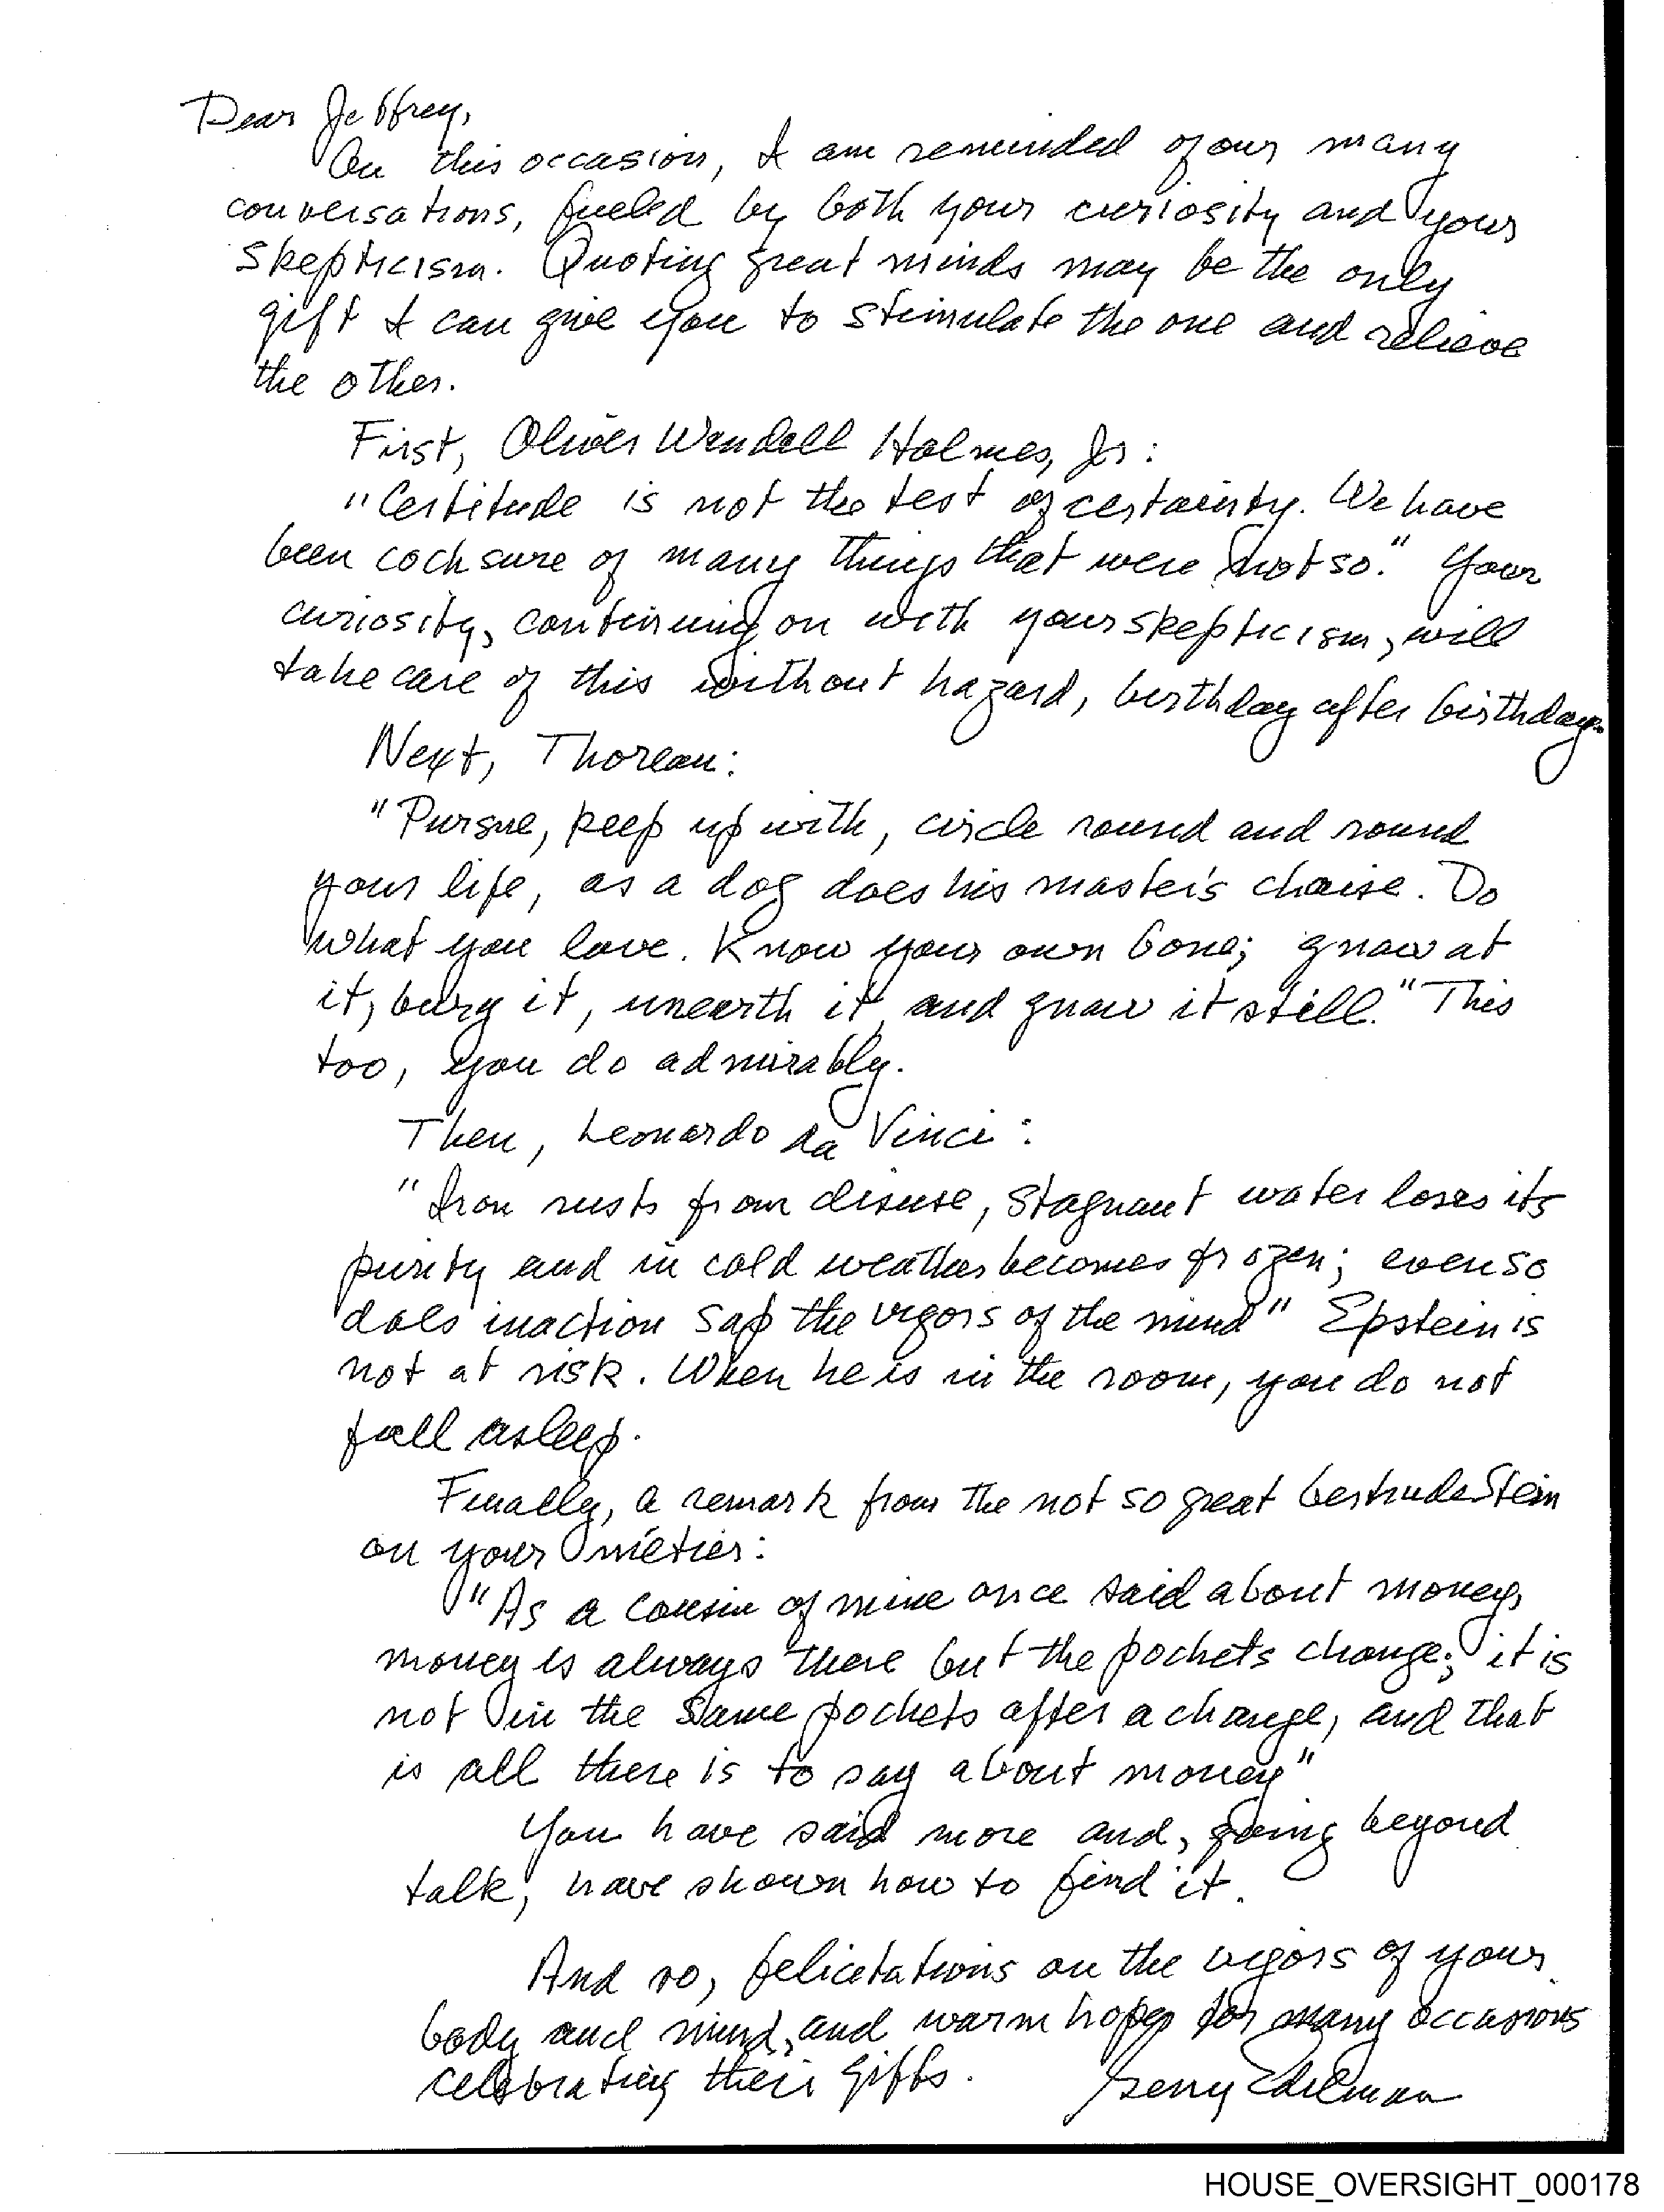 Dear Jeffrey,
On this occasion, I am reminded of our many
conversations, fueled by both your curiosity and your
skepticism. Quoting great minds may be the only
gift I can give you to stimulate the one and relieve
the other.
First, Oliver Wendell Holmes, Jr:
"Certitude is not the test of certainty. We have
been cock sure of many things that were not so." Your
curiosity, continuing on with your skepticism, will
take care of this without hazard, birthday after birthday.
Next, Thoreau:
"Pursue, keep up with, circle round and round
your life, as a dog does his master's chaise. Do
what you love. Know your own bone; gnaw at
it, bury it, unearth it and gnaw it still." This
too, you do admirably.
Then, Leonardo da Vinci:
"Iron rusts from disuse, stagnant water loses its
purity and in cold weather becomes frozen; even so
does inaction sap the vigors of the mind" Epstein is
not at risk. When he is in the room, you do not
fall asleep.
Finally, a remark from the not so great Gertrude Stein
on your métier:
"As a cousin of mine once said about money,
money is always there but the pockets change; it is
not in the same pockets after a change, and that
is all there is to say about money"
You have said more and, going beyond
talk, have shown how to find it.
And so, felicitations on the vigors of your
body and mind, and warm hopes for many occasions
celebrating their gifts. Gerry Edelman
HOUSE_OVERSIGHT_000178